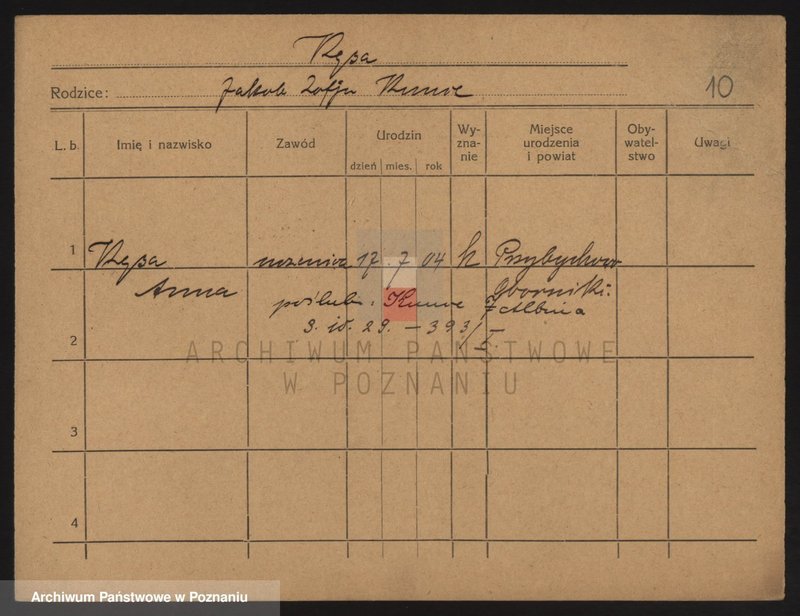 Kępa
Rodzice: Jakób Zofja Kunce
10
L. b. Imię i nazwisko Zawód Urodzin dzień mies. rok Wy-zna-nie Miejsce urodzenia i powiat Oby-watel-stwo Uwagi
1 Kępa uczenica 17 7 04 k Przybychowo
Anna Oborniki
poślub. Kunce Albina
2 3. 10. 29. — 393/
ARCHIWUM PAŃSTWOWE
W POZNANIU
3
4
Archiwum Państwowe w Poznaniu